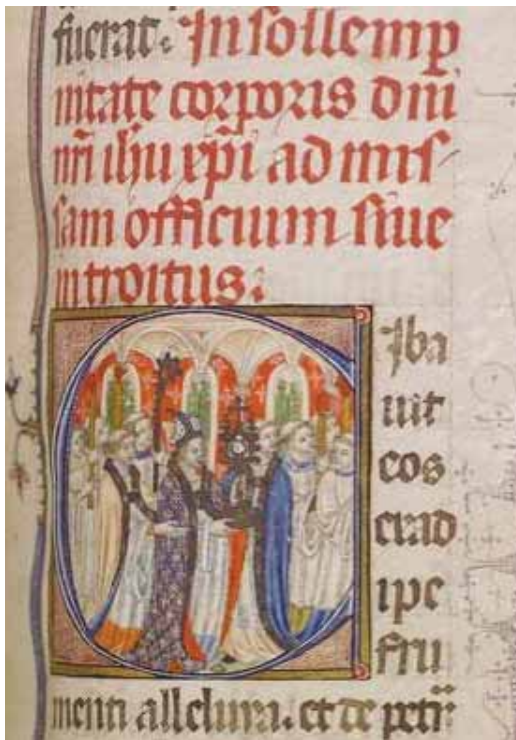 fuerat. In sollemp
nitate corporis dni
nri ihu xpi ad mis
sam officium siue
introitus.
C
Iba
uit
eos
exad
ipe
fru
menti alleluya. et de petra